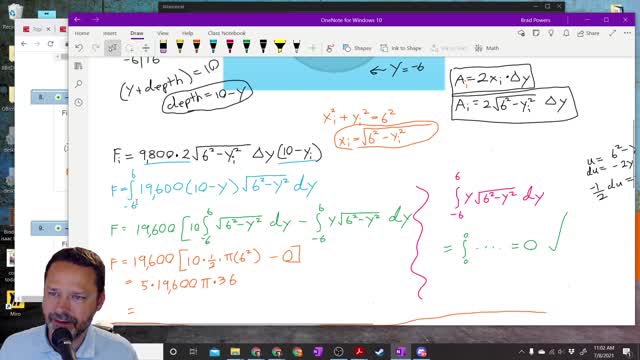 Miro/Internet
OneNote for Windows 10
Brad Powers
File
Home
Insert
Draw
View
Help
Class Notebook
Shapes
Ink to Shape
Ink to Text
Math
-6/16
(y+depth)=10
depth=10-y
← y=-6
Aᵢ=2xᵢ·Δy
Aᵢ=2√(6²-yᵢ²) Δy
xᵢ²+yᵢ²=6²
xᵢ=√(6²-yᵢ²)
Fᵢ=9,800·2√(6²-yᵢ²) Δy(10-yᵢ)
F=∫₋₆⁶ 19,600(10-y)√(6²-y²) dy
F=19,600[10∫₋₆⁶ √(6²-y²) dy - ∫₋₆⁶ y√(6²-y²) dy
F=19,600[10·½·π(6²) - 0]
= 5·19,600π·36
=
∫₋₆⁶ y√(6²-y²) dy
= ∫₀⁰ ···· = 0 ✓
u=6²-
du=-2y
-½ du=
8.
9.
11:02 AM
7/8/2021